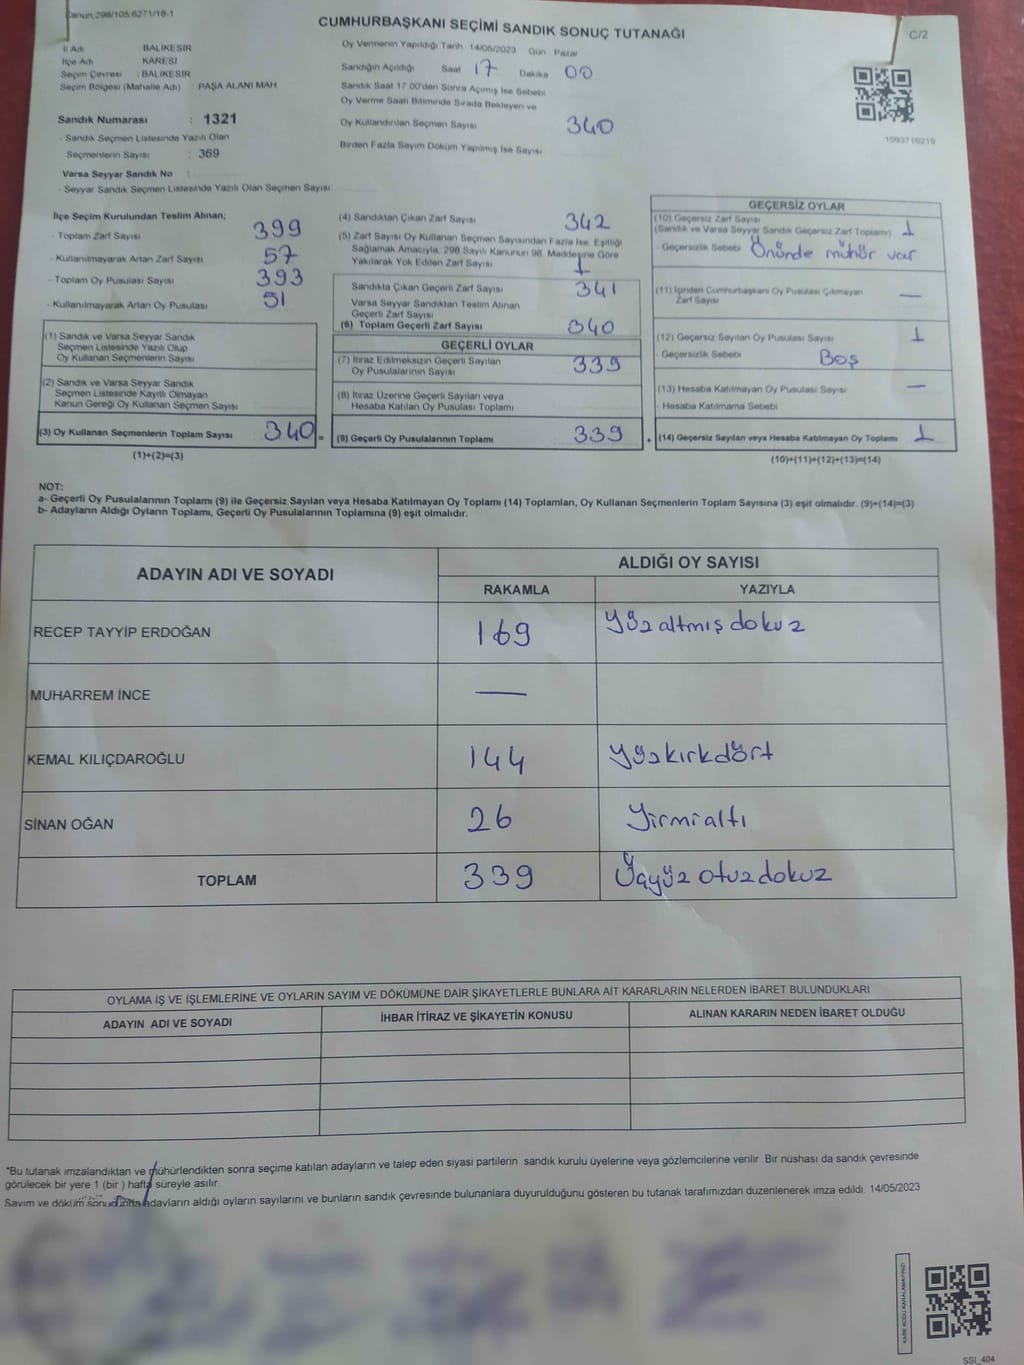 Kanun:298/105;6271/18-1
CUMHURBAŞKANI SEÇİMİ SANDIK SONUÇ TUTANAĞI
C/2
İl Adı BALIKESİR
İlçe Adı KARESİ
Seçim Çevresi : BALIKESİR
Seçim Bölgesi (Mahalle Adı) : PAŞA ALANI MAH
Sandık Numarası : 1321
- Sandık Seçmen Listesinde Yazılı Olan
Seçmenlerin Sayısı : 369
Varsa Seyyar Sandık No :
- Seyyar Sandık Seçmen Listesinde Yazılı Olan Seçmen Sayısı
Oy Vermenin Yapıldığı Tarih 14/05/2023 Gün Pazar
Sandığın Açıldığı Saat 17 Dakika 00
Sandık Saat 17.00'den Sonra Açımış İse Sebebi
Oy Verme Saati Bitiminde Sırada Bekleyen ve
Oy Kullandırılan Seçmen Sayısı 340
Birden Fazla Sayım Döküm Yapılmış İse Sayısı
1093716219
İlçe Seçim Kurulundan Teslim Alınan;
- Toplam Zarf Sayısı 399
- Kullanılmayarak Artan Zarf Sayısı 57
- Toplam Oy Pusulası Sayısı 393
- Kullanılmayarak Artan Oy Pusulası 51
(1) Sandık ve Varsa Seyyar Sandık
Seçmen Listesinde Yazılı Olup
Oy Kullanan Seçmenlerin Sayısı
(2) Sandık ve Varsa Seyyar Sandık
Seçmen Listesinde Kayıtlı Olmayan
Kanun Gereği Oy Kullanan Seçmen Sayısı
(3) Oy Kullanan Seçmenlerin Toplam Sayısı 340 =
(1)+(2)=(3)
(4) Sandıktan Çıkan Zarf Sayısı 342
(5) Zarf Sayısı Oy Kullanan Seçmen Sayısından Fazla İse, Eşitliği
Sağlamak Amacıyla, 298 Sayılı Kanunun 98. Maddesine Göre
Yakılarak Yok Edilen Zarf Sayısı 1
Sandıkta Çıkan Geçerli Zarf Sayısı 341
Varsa Seyyar Sandıktan Teslim Alınan
Geçerli Zarf Sayısı
(6) Toplam Geçerli Zarf Sayısı 340
GEÇERLİ OYLAR
(7) İtiraz Edilmeksizin Geçerli Sayılan
Oy Pusulalarının Sayısı 339
(8) İtiraz Üzerine Geçerli Sayılan veya
Hesaba Katılan Oy Pusulası Toplamı
(9) Geçerli Oy Pusulalarının Toplamı 339 +
GEÇERSİZ OYLAR
(10) Geçersiz Zarf Sayısı
(Sandık ve Varsa Seyyar Sandık Geçersiz Zarf Toplamı) 1
- Geçersizlik Sebebi Önünde mühür var
(11) İçinden Cumhurbaşkanı Oy Pusulası Çıkmayan
Zarf Sayısı —
(12) Geçersiz Sayılan Oy Pusulası Sayısı 1
- Geçersizlik Sebebi Boş
(13) Hesaba Katılmayan Oy Pusulası Sayısı —
- Hesaba Katılmama Sebebi
(14) Geçersiz Sayılan veya Hesaba Katılmayan Oy Toplamı 1
(10)+(11)+(12)+(13)=(14)
NOT:
a- Geçerli Oy Pusulalarının Toplamı (9) ile Geçersiz Sayılan veya Hesaba Katılmayan Oy Toplamı (14) Toplamları, Oy Kullanan Seçmenlerin Toplam Sayısına (3) eşit olmalıdır. (9)+(14)=(3)
b- Adayların Aldığı Oyların Toplamı, Geçerli Oy Pusulalarının Toplamına (9) eşit olmalıdır.
ADAYIN ADI VE SOYADI
ALDIĞI OY SAYISI
RAKAMLA YAZIYLA
RECEP TAYYİP ERDOĞAN 169 Yüzaltmışdokuz
MUHARREM İNCE —
KEMAL KILIÇDAROĞLU 144 Yüzkırkdört
SİNAN OĞAN 26 Yirmialtı
TOPLAM 339 Üçyüz otuzdokuz
OYLAMA İŞ VE İŞLEMLERİNE VE OYLARIN SAYIM VE DÖKÜMÜNE DAİR ŞİKAYETLERLE BUNLARA AİT KARARLARIN NELERDEN İBARET BULUNDUKLARI
ADAYIN ADI VE SOYADI İHBAR İTİRAZ VE ŞİKAYETİN KONUSU ALINAN KARARIN NEDEN İBARET OLDUĞU
*Bu tutanak imzalandıktan ve mühürlendikten sonra seçime katılan adayların ve talep eden siyasi partilerin sandık kurulu üyelerine veya gözlemcilerine verilir. Bir nüshası da sandık çevresinde
görülecek bir yere 1 (bir ) hafta süreyle asılır.
Sayım ve döküm sonucunda adayların aldığı oyların sayılarını ve bunların sandık çevresinde bulunanlara duyurulduğunu gösteren bu tutanak tarafımızdan düzenlenerek imza edildi. 14/05/2023
KARE KODU KARALAMAYINIZ!
SSI_404